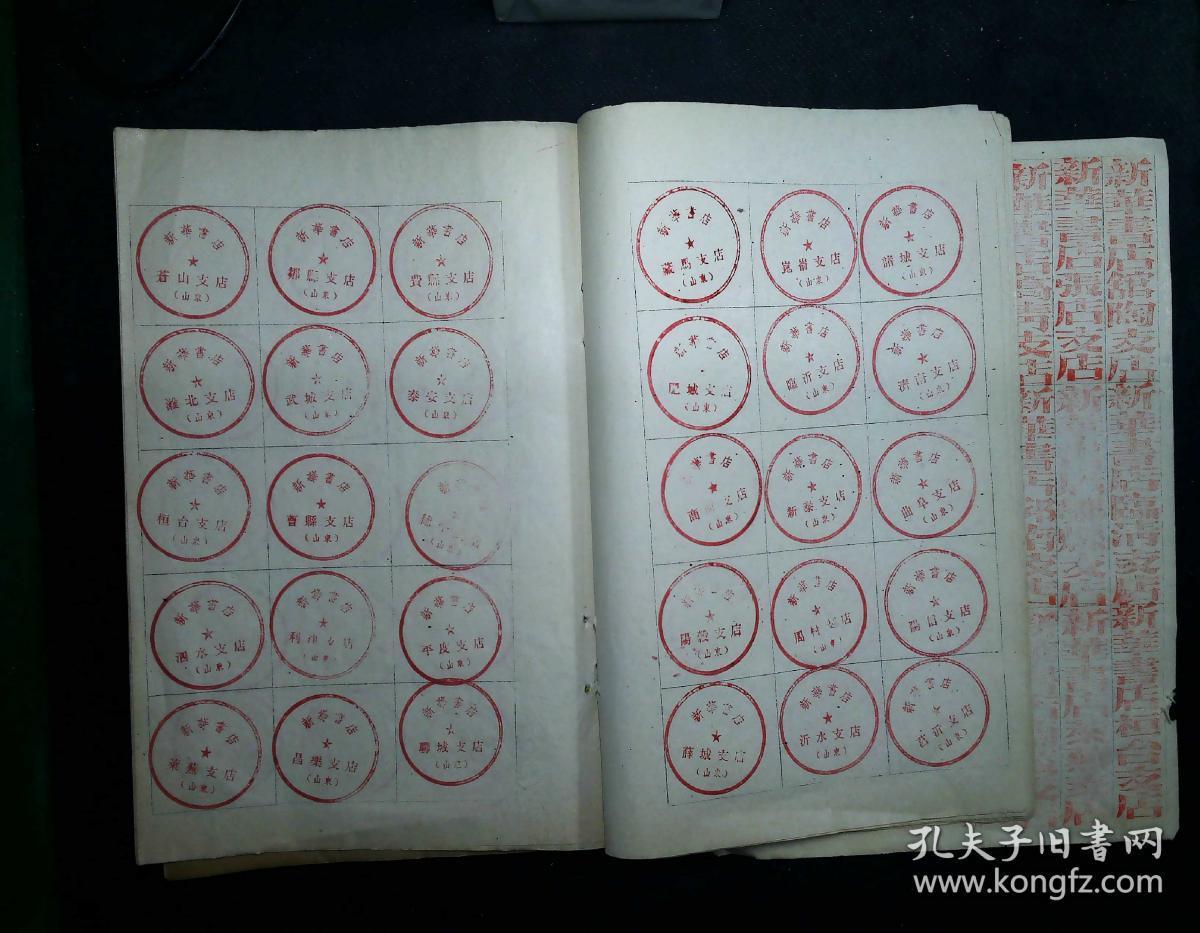 新華書店
蒼山支店
（山東）
新華書店
鄒縣支店
（山東）
新華書店
費縣支店
（山東）
新華書店
濰北支店
（山東）
新華書店
武城支店
（山東）
新華書店
泰安支店
（山東）
新華書店
桓台支店
（山東）
新華書店
曹縣支店
（山東）
新華書店
泗水支店
（山東）
新華書店
利津支店
（山東）
新華書店
平度支店
（山東）
新華書店
萊蕪支店
（山東）
新華書店
昌樂支店
（山東）
新華書店
聊城支店
（山東）
新華書店
藏馬支店
（山東）
新華書店
崑崳支店
（山東）
新華書店
諸城支店
（山東）
新華書店
肥城支店
（山東）
新華書店
臨沂支店
（山東）
新華書店
濟南支店
（山東）
華書店
支店
（山東）
新華書店
新泰支店
（山東）
新華書店
曲阜支店
（山東）
新華書店
陽穀支店
（山東）
新華書店
周村支店
（山東）
新華書店
陽信支店
（山東）
新華書店
薛城支店
（山東）
新華書店
沂水支店
（山東）
新華書店
莒沂支店
（山東）
新華書店館陶支店新華書店臨清支店新華書店桓台支店
新華書店張店支店
孔夫子旧书网
www.kongfz.com